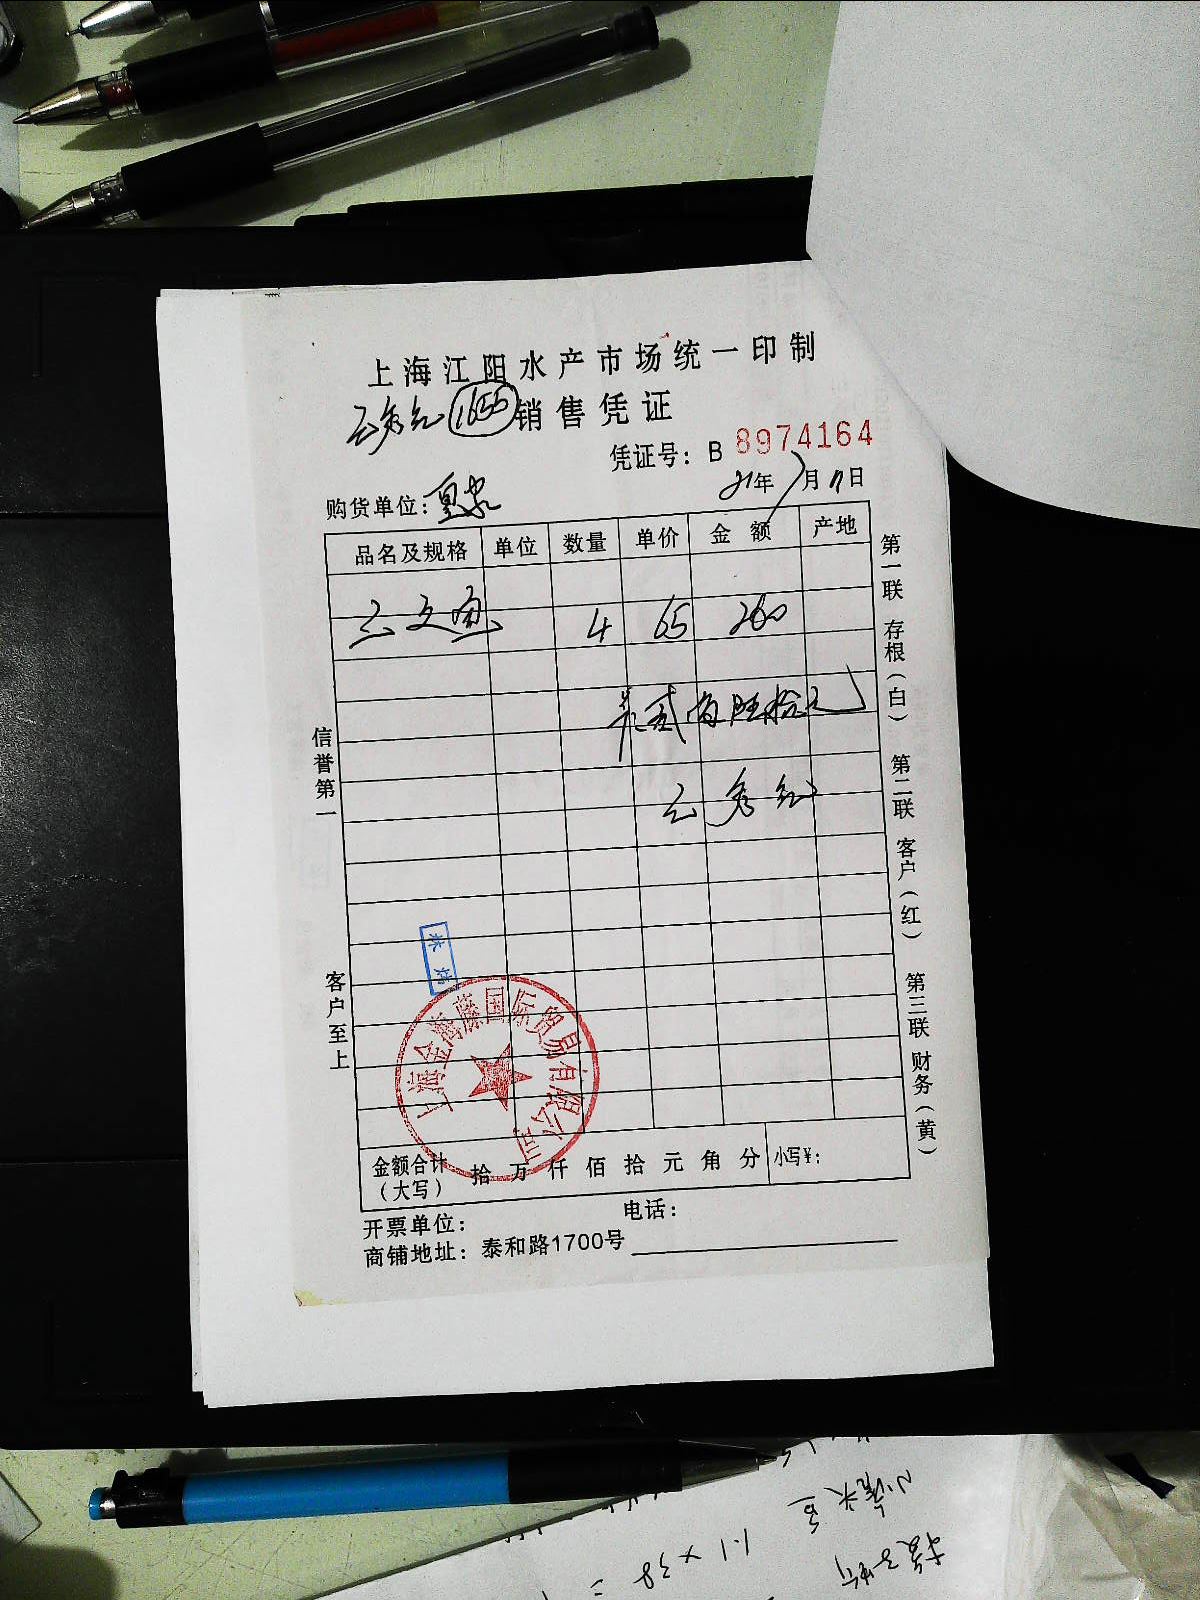 上海江阳水产市场统一印制
1655 销售凭证
凭证号：B 8974164
购货单位：
21年7月11日
品名及规格 单位 数量 单价 金额 产地
三文鱼 4 65 260
共贰佰陆拾元
信誉第一
客户至上
第一联 存根（白）
第二联 客户（红）
第三联 财务（黄）
上海金海藤国际贸易有限公司
金额合计（大写） 拾 万 仟 佰 拾 元 角 分 小写¥：
开票单位： 电话：
商铺地址：泰和路1700号
1.1 x 38 =